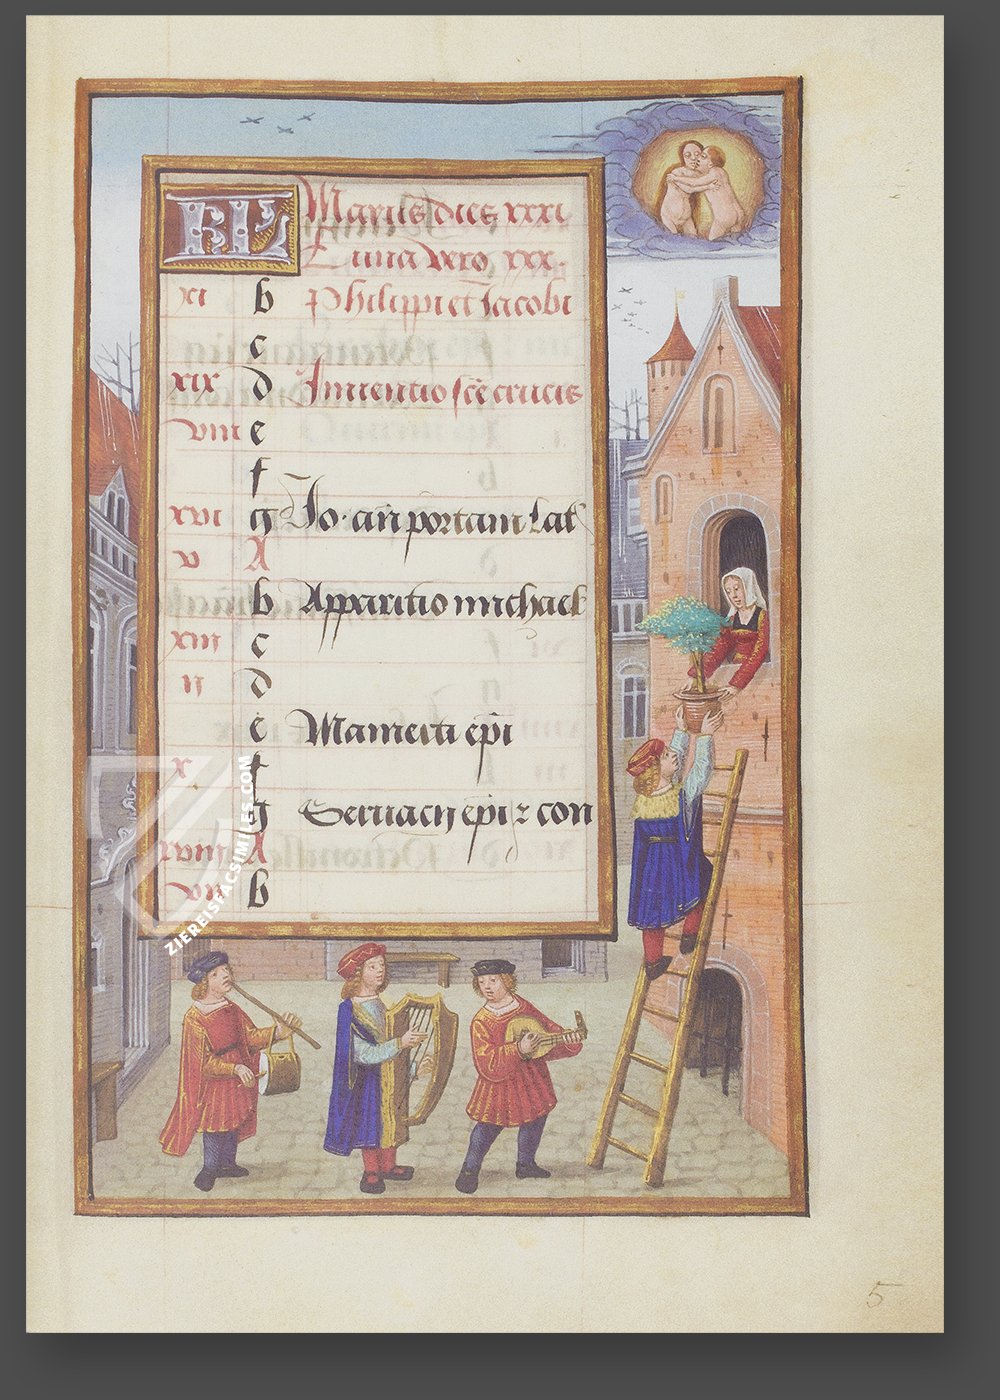 KL Maius dies xxxi
Luna vero xxx.
xi b Philippi et Jacobi
c
xix d Inuentio scē crucis
viii e
f
xvi g Jo. an̄ portam lat
v A
b Apparitio michael
xiii c
ii d
e Mamerti epī
x f
g Seruacij epī z con
xviii A
vii b
ZIEREISFACSIMILES.COM
5